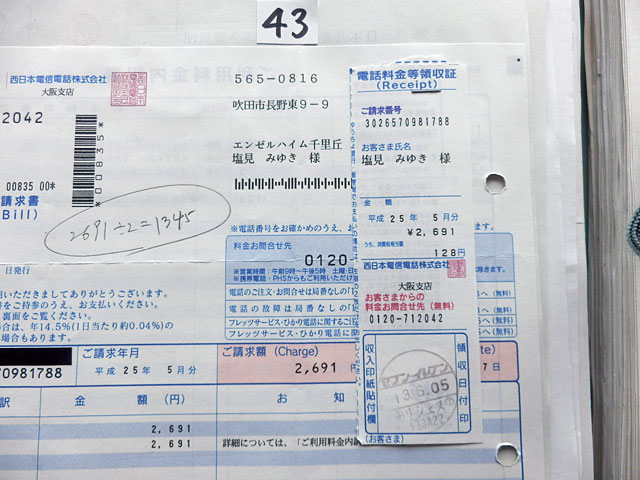 43
西日本電信電話株式会社
大阪支店
2042
00835 00*
*00835*
請求書
Bill)
2691÷2=1345
565-0816
吹田市長野東9-9
エンゼルハイム千里丘
塩見 みゆき 様
※電話番号をお確かめのうえ、お
料金お問合せ先
0120
※営業時間:午前9時～午後5時 土曜・日
※携帯電話・PHSからもご利用いただけ
電話のご注文・お問合せは局番なしの「
電話の故障は局番なしの「
フレッツサービス・ひかり電話に関するご注
フレッツサービス・ひかり電話
日発行
いただきましてありがとうございます。
をご持参のうえ、お支払いください。
裏面をご覧ください。
合は、年14.5%(1日当たり約0.04%)の
場合もあります。
70981788
ご請求年月
平成 25年 5月分
ご請求額 (Charge)
2,691 円
7日
訳
金 額 (円)
お 知
2,691
2,691
詳細については、「ご利用料金内訳
電話料金等領収証
(Receipt)
ご請求番号
3026570981788
お客さま氏名
塩見 みゆき 様
金 額
平成 25年 5月分
¥2,691
うち、消費税相当額
128円
西日本電信電話株式会社
大阪支店
お客さまからの
料金お問合せ先(無料)
0120-712042
収入印紙貼付欄
領収日付印
セブン-イレブン
13.6.05
(お客さま)